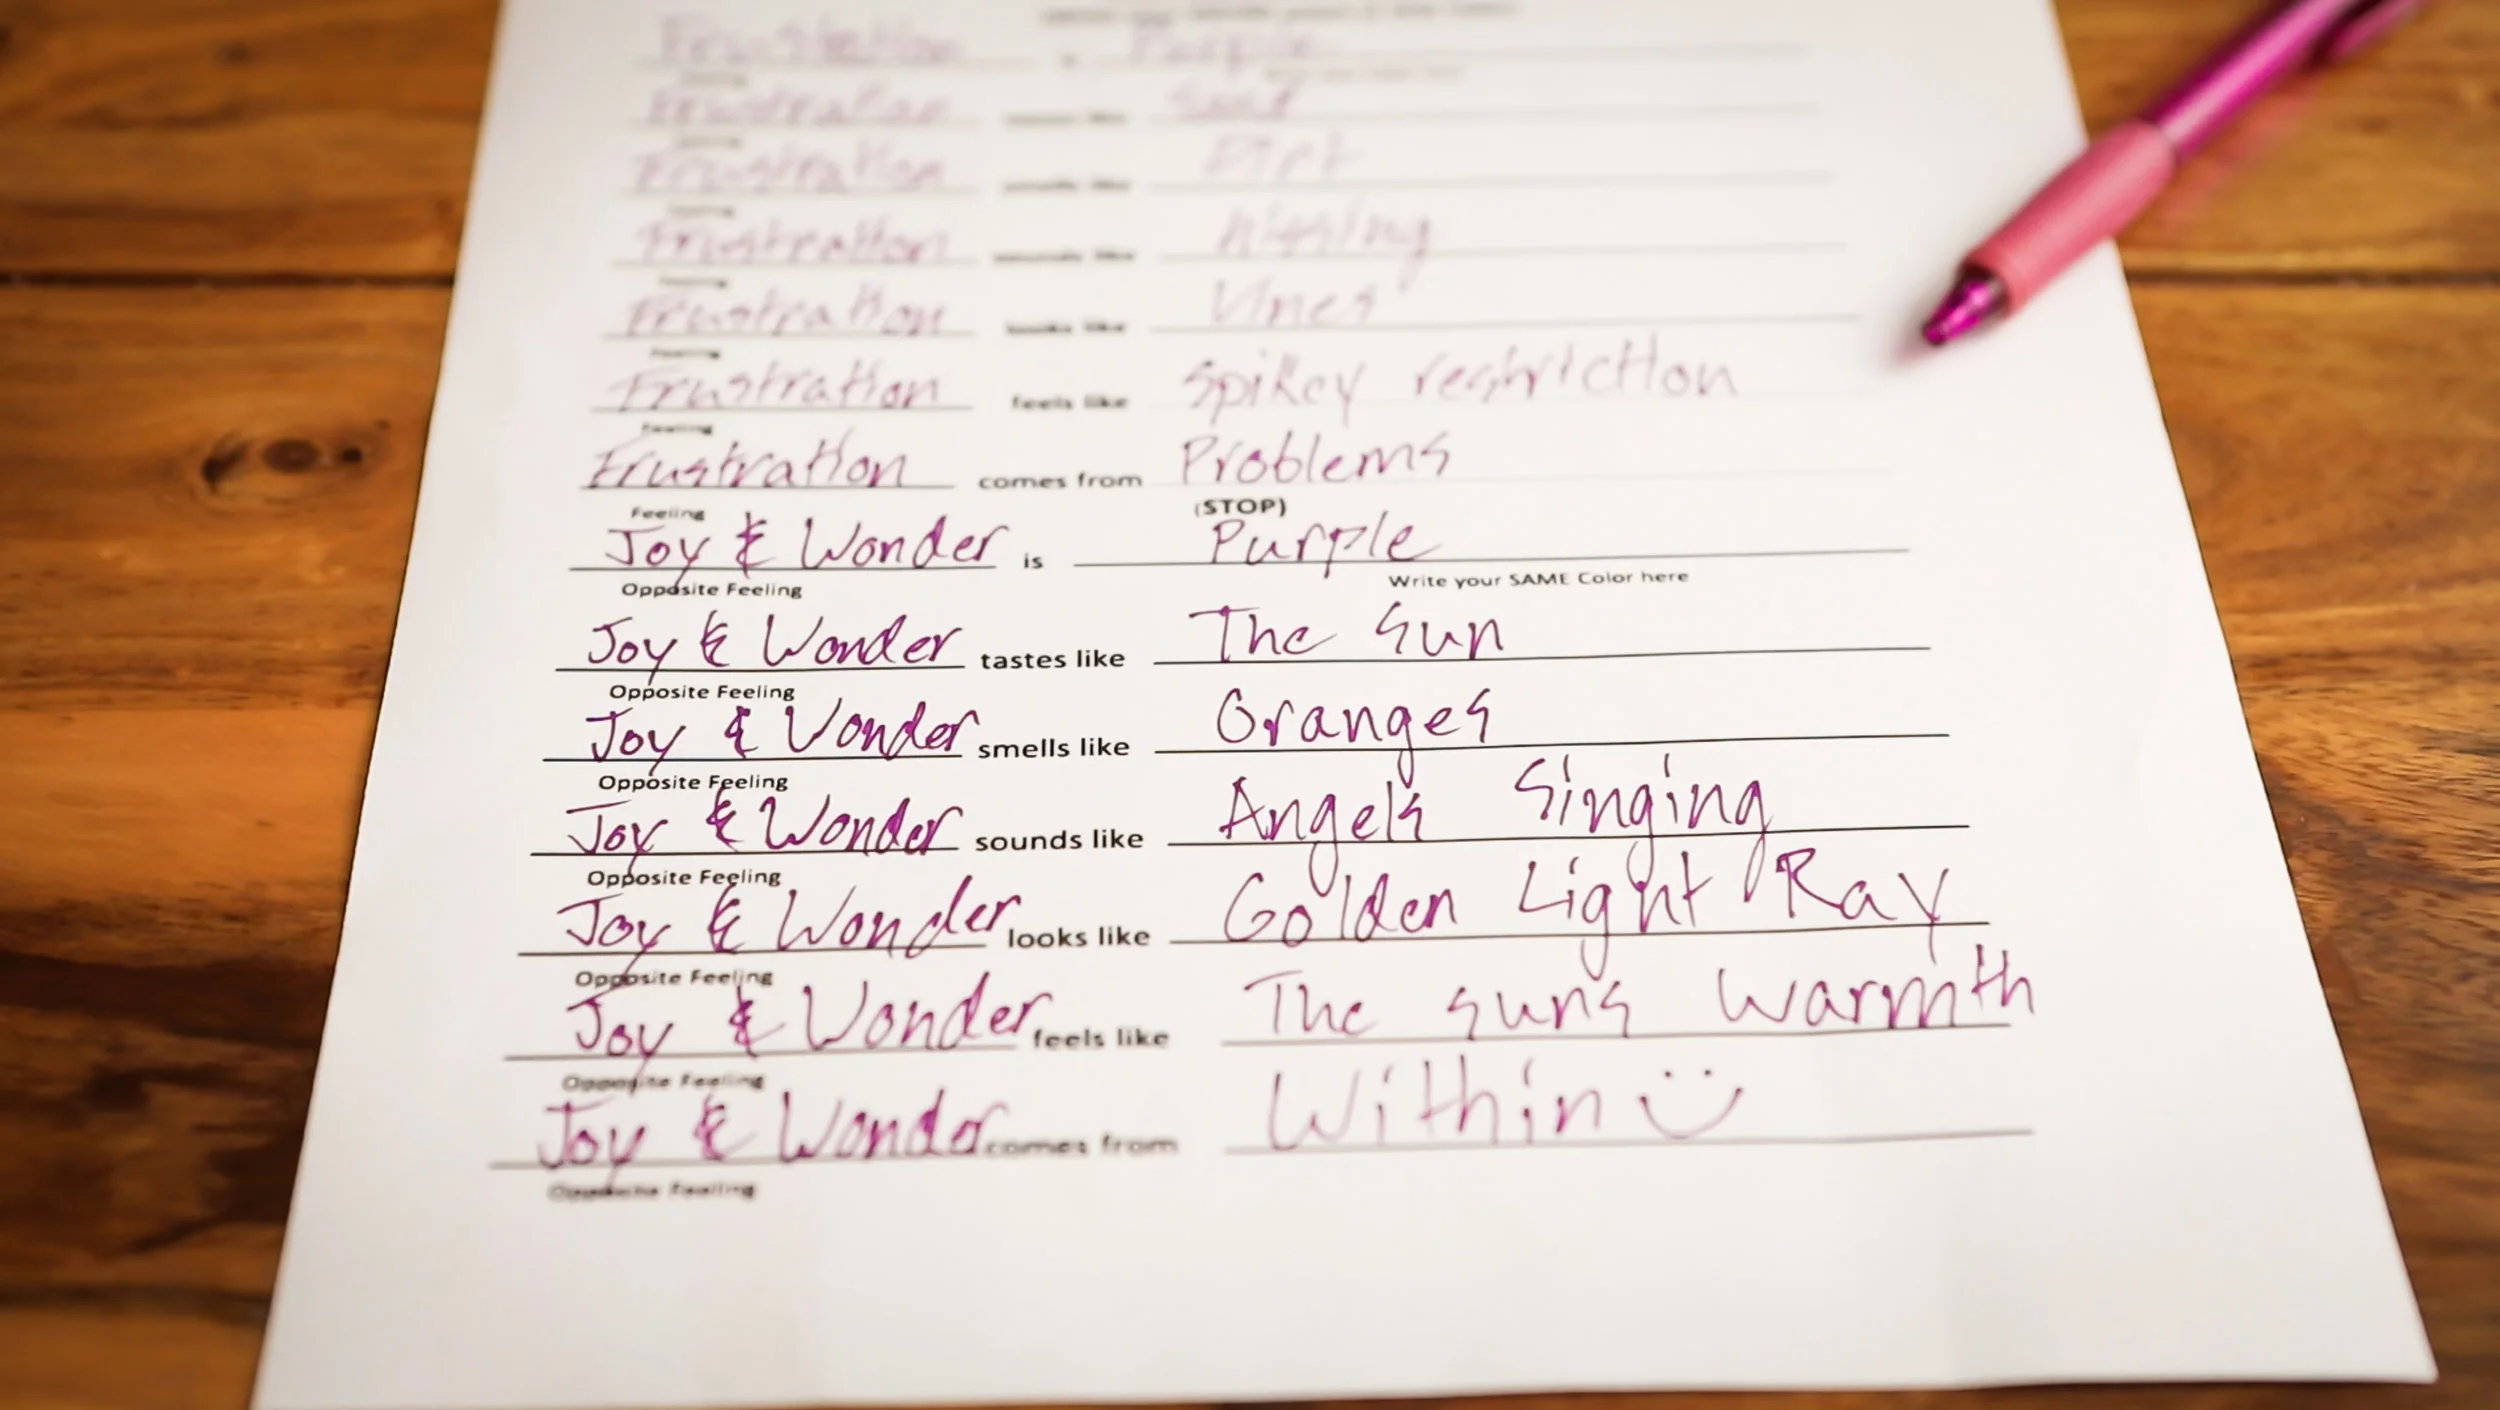 Frustration is Purple
Feeling
Frustration tastes like
Feeling
Frustration smells like Dirt
Feeling
Frustration sounds like hissing
Feeling
Frustration looks like Vines
Feeling
Frustration feels like Spikey restriction
Feeling
Frustration comes from Problems
Feeling (STOP)
Joy & Wonder is Purple
Opposite Feeling Write your SAME Color here
Joy & Wonder tastes like The Sun
Opposite Feeling
Joy & Wonder smells like Oranges
Opposite Feeling
Joy & Wonder sounds like Angels Singing
Opposite Feeling
Joy & Wonder looks like Golden Light Ray
Opposite Feeling
Joy & Wonder feels like The suns warmth
Opposite Feeling
Joy & Wonder comes from Within
Opposite Feeling